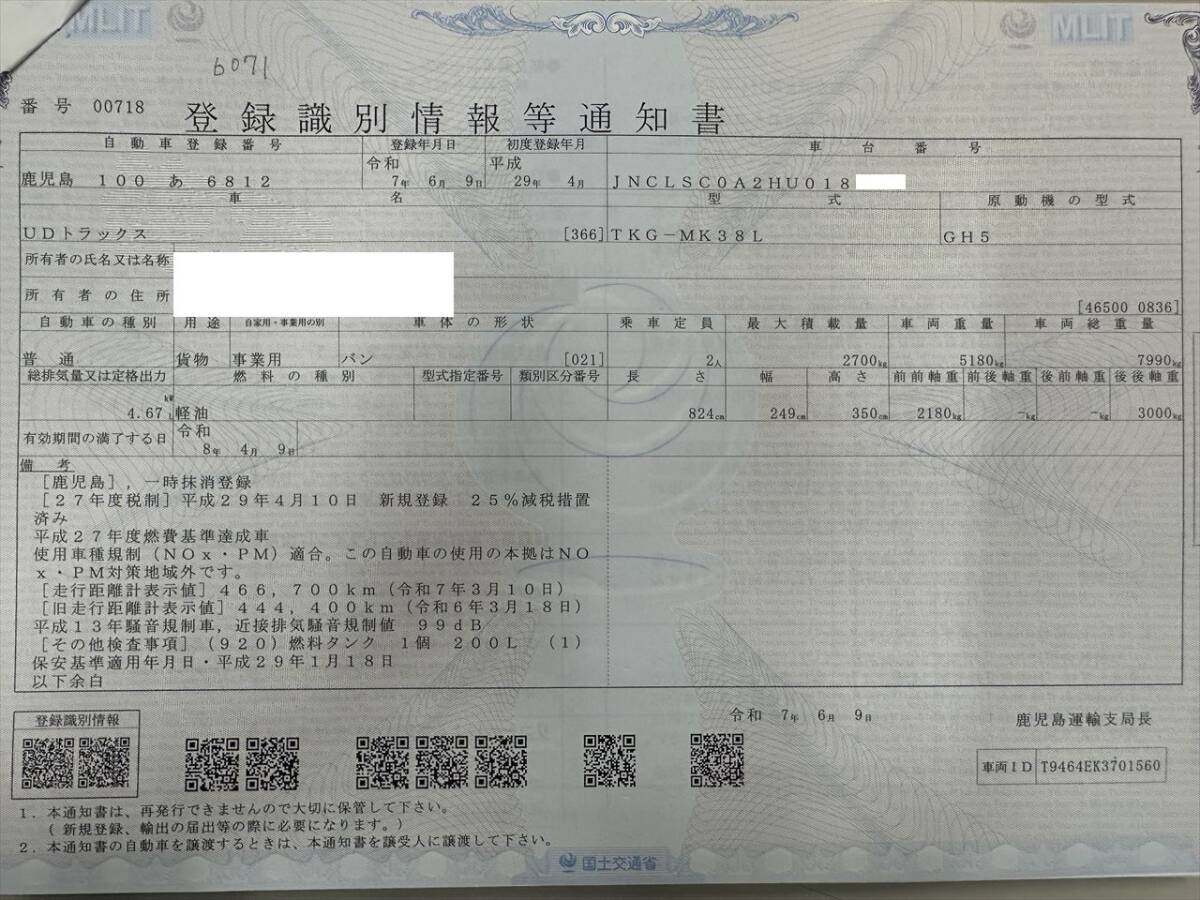 MLIT
MLIT
6071
番号 00718 登録識別情報等通知書
自動車登録番号 登録年月日 初度登録年月 車台番号
鹿児島 100 あ 6812 令和 7年 6月 9日 平成 29年 4月 JNCLSC0A2HU018
車名 型式 原動機の型式
UDトラックス [366] TKG-MK38L GH5
所有者の氏名又は名称
所有者の住所
[46500 0836]
自動車の種別 用途 自家用・事業用の別 車体の形状 乗車定員 最大積載量 車両重量 車両総重量
普通 貨物 事業用 バン [021] 2人 2700kg 5180kg 7990kg
総排気量又は定格出力 燃料の種別 型式指定番号 類別区分番号 長さ 幅 高さ 前前軸重 前後軸重 後前軸重 後後軸重
4.67 kW L 軽油 824cm 249cm 350cm 2180kg -kg -kg 3000kg
有効期間の満了する日 令和 8年 4月 9日
備考
[鹿児島],一時抹消登録
[27年度税制]平成29年4月10日 新規登録 25%減税措置
済み
平成27年度燃費基準達成車
使用車種規制(NOx・PM)適合。この自動車の使用の本拠はNO
x・PM対策地域外です。
[走行距離計表示値]466,700km(令和7年3月10日)
[旧走行距離計表示値]444,400km(令和6年3月18日)
平成13年騒音規制車,近接排気騒音規制値 99dB
[その他検査事項](920)燃料タンク 1個 200L (1)
保安基準適用年月日・平成29年1月18日
以下余白
登録識別情報
令和 7年 6月 9日 鹿児島運輸支局長
車両ID T9464EK3701560
1.本通知書は、再発行できませんので大切に保管して下さい。
(新規登録、輸出の届出等の際に必要になります。)
2.本通知書の自動車を譲渡するときは、本通知書を譲受人に譲渡して下さい。
国土交通省